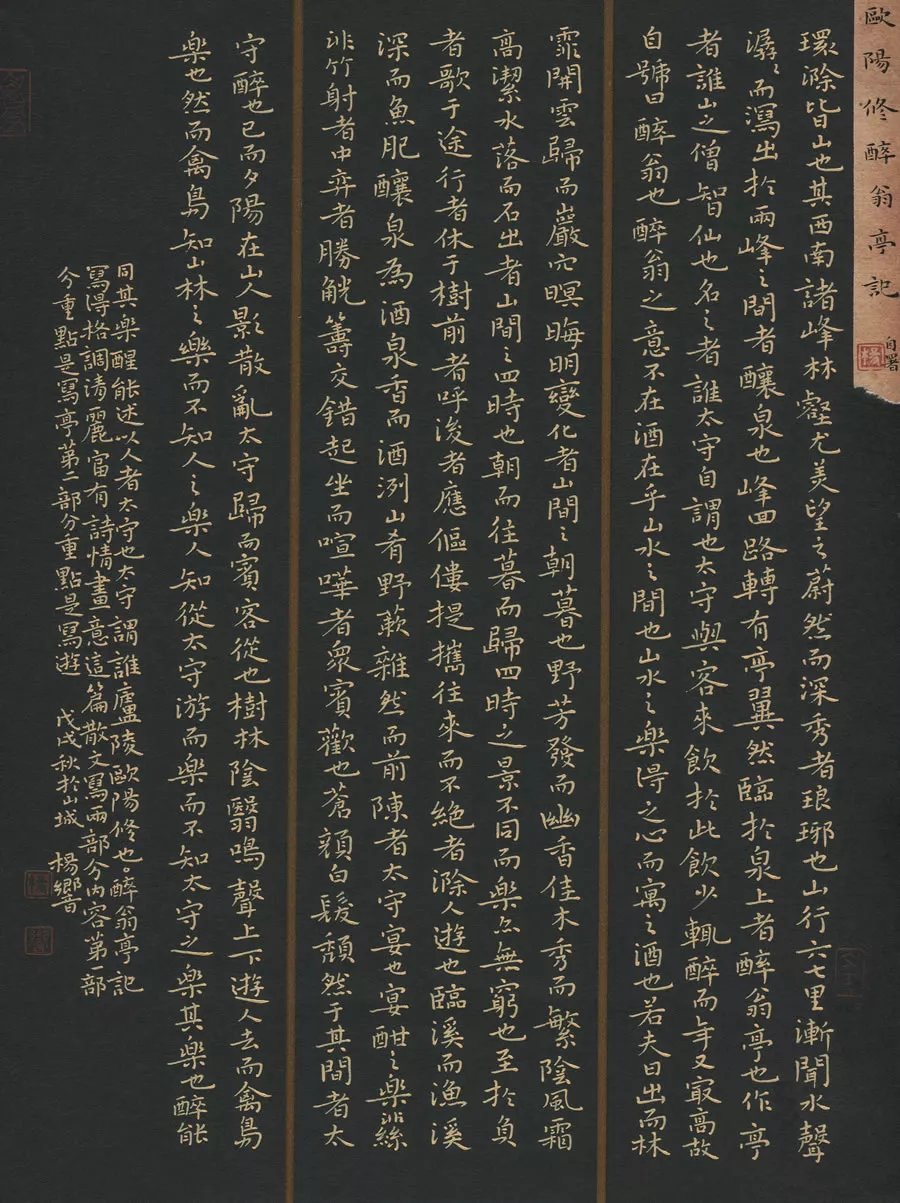 歐陽修醉翁亭記
自署
環滁皆山也其西南諸峰林壑尤美望之蔚然而深秀者琅琊也山行六七里漸聞水聲
潺〻而瀉出於兩峰之間者釀泉也峰回路轉有亭翼然臨於泉上者醉翁亭也作亭
者誰山之僧智仙也名之者誰太守自謂也太守與客來飲於此飲少輒醉而年又最高故
自號曰醉翁也醉翁之意不在酒在乎山水之間也山水之樂得之心而寓之酒也若夫日出而林
霏開雲歸而巖穴暝晦明變化者山間之朝暮也野芳發而幽香佳木秀而繁陰風霜
高潔水落而石出者山間之四時也朝而往暮而歸四時之景不同而樂亦無窮也至於負
者歌于途行者休于樹前者呼後者應傴僂提攜往來而不絕者滁人遊也臨溪而漁溪
深而魚肥釀泉為酒泉香而酒洌山肴野蔌雜然而前陳者太守宴也宴酣之樂非絲
非竹射者中弈者勝觥籌交錯起坐而喧嘩者衆賓歡也蒼顏白髮頹然于其間者太
守醉也已而夕陽在山人影散亂太守歸而賓客從也樹林陰翳鳴聲上下遊人去而禽鳥
樂也然而禽鳥知山林之樂而不知人之樂人知從太守游而樂而不知太守之樂其樂也醉能
同其樂醒能述以人者太守也太守謂誰廬陵歐陽修也。醉翁亭記
寫得格調清麗富有詩情畫意這篇散文寫兩部分內容第一部
分重點是寫亭第二部分重點是寫遊 戊戌秋於山城 楊鄉音